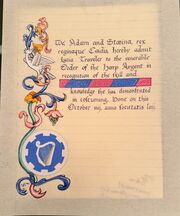 We Adam and Statina, rex
reginaque Caidis, hereby admit
Traveler to the venerable
Order of the Harp Argent in
recognition of the skill and
knowledge s/he has demonstrated
in costuming. Done on this
October
anno societatis